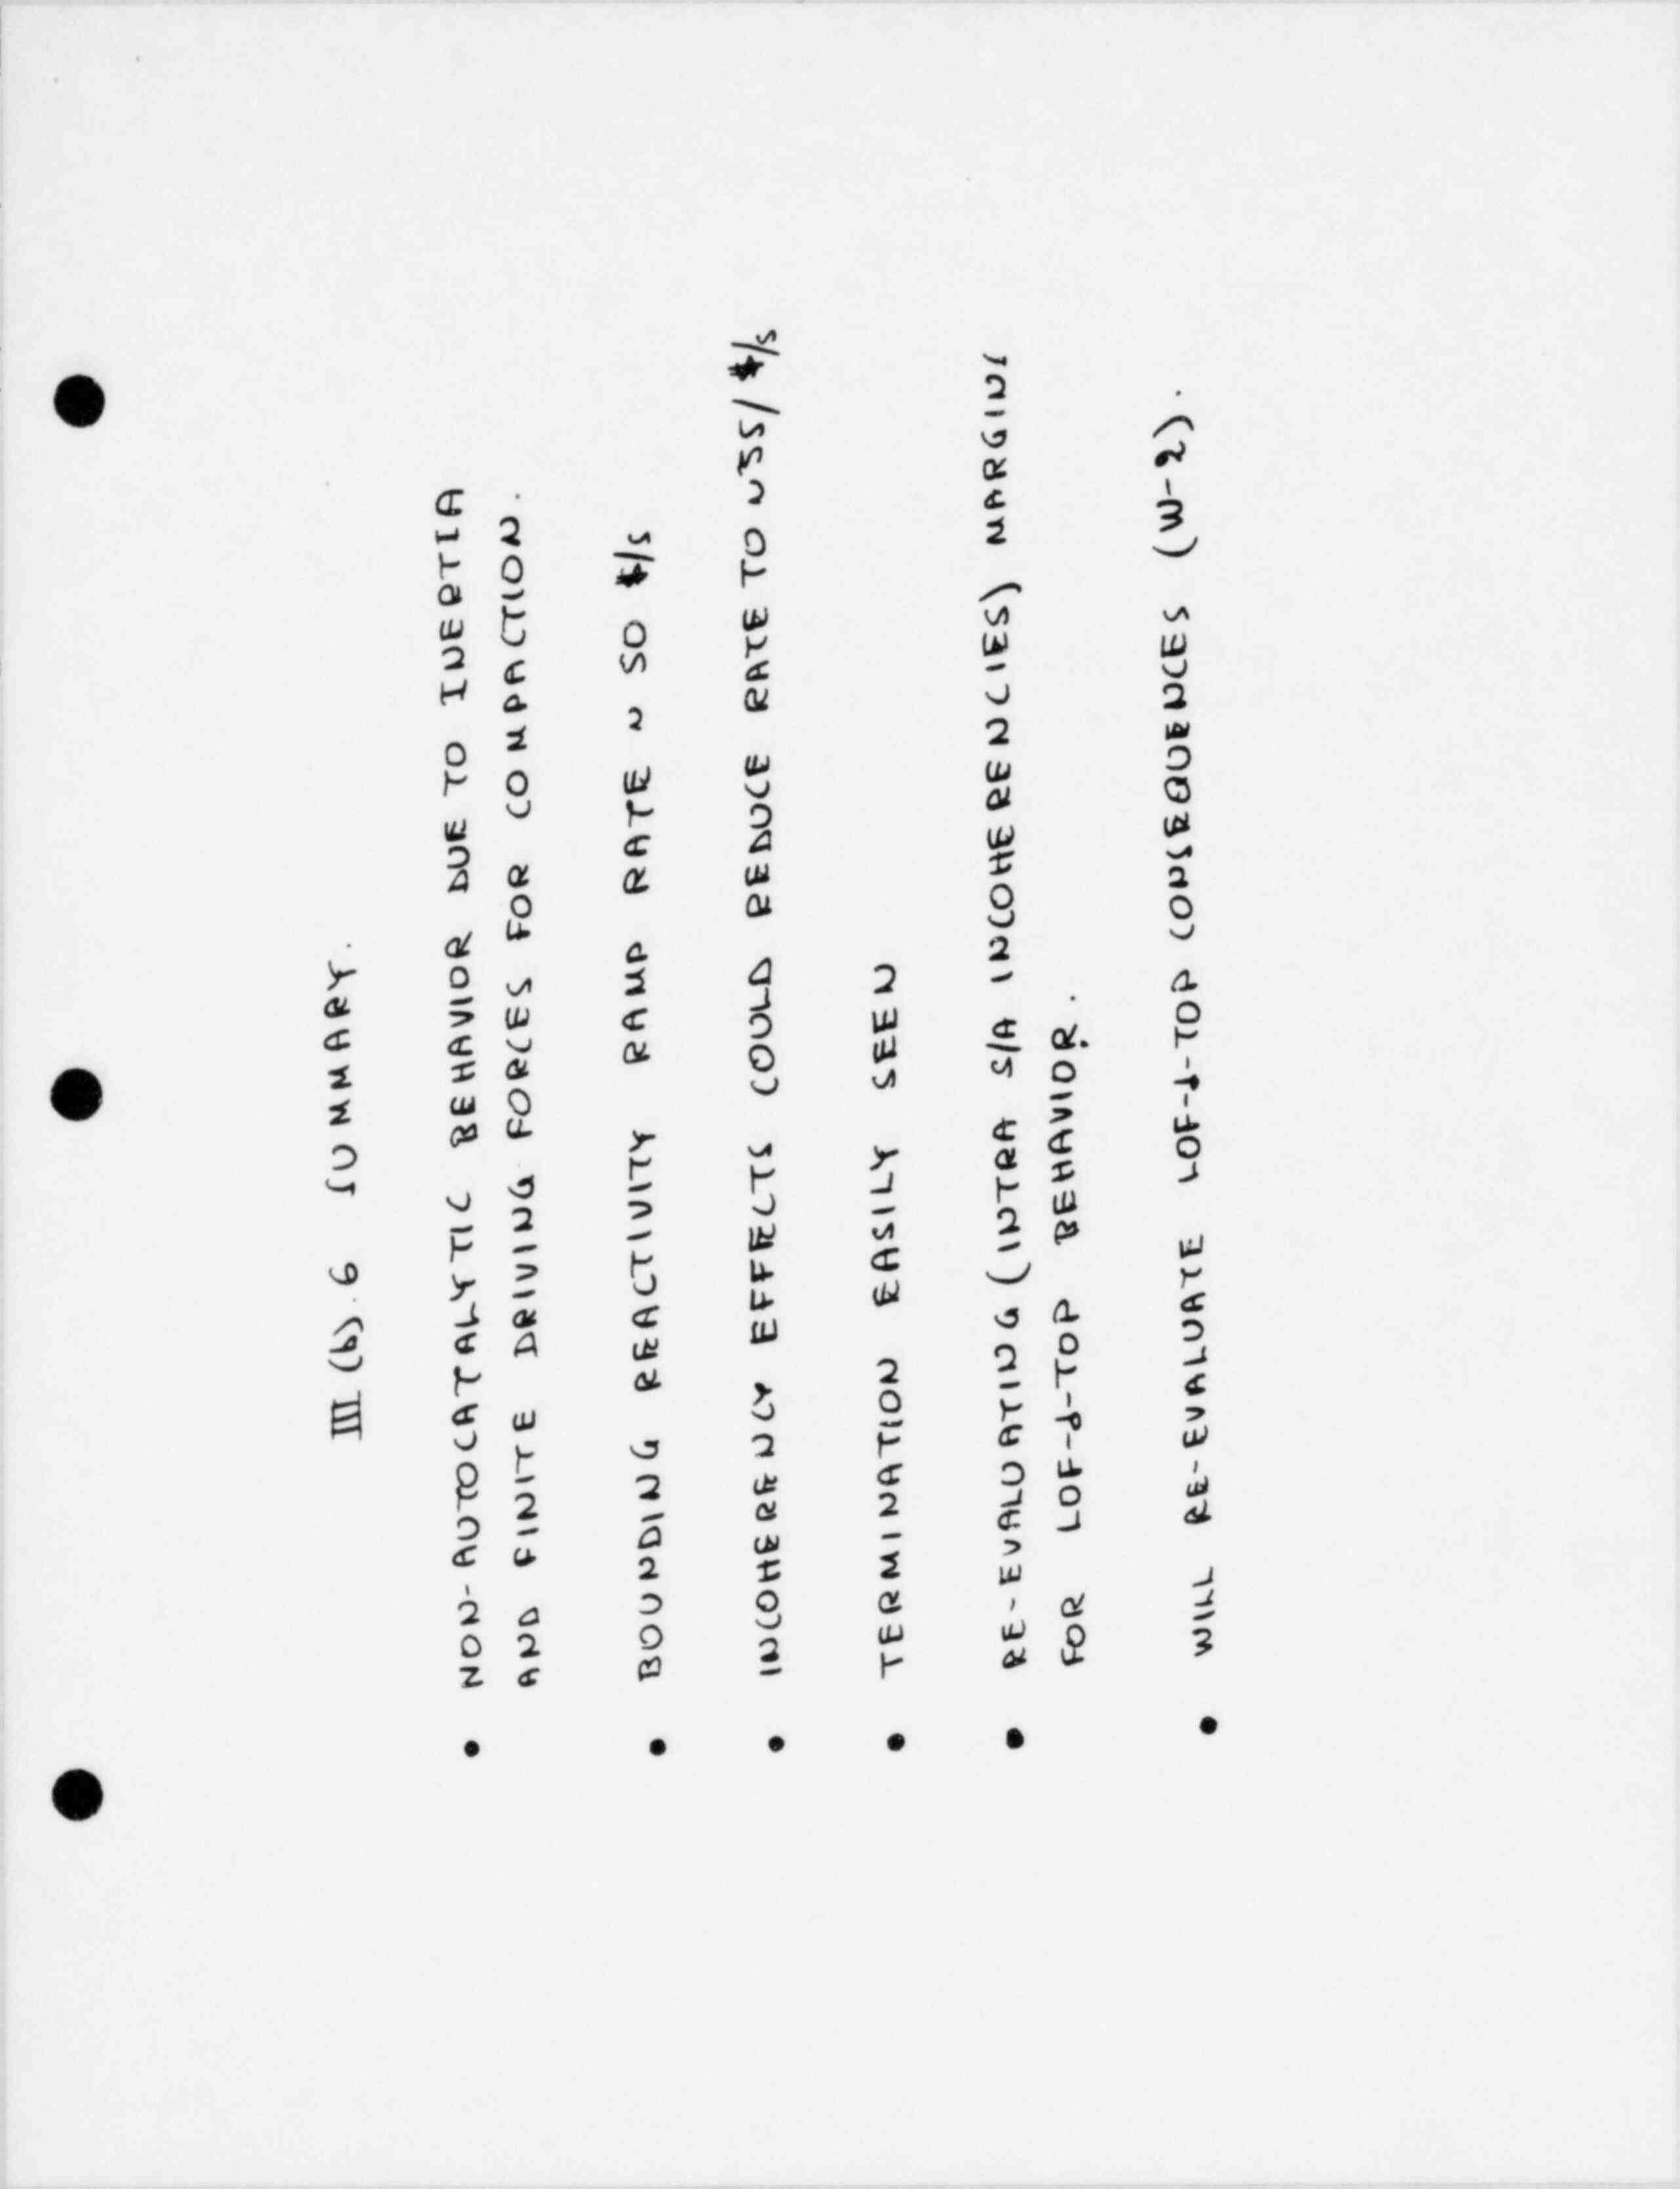 III (b).6 SUMMARY.
• NON-AUTOCATALYTIC BEHAVIOR DUE TO INERTIA
AND FINITE DRIVING FORCES FOR COMPACTION.
• BOUNDING REACTIVITY RAMP RATE ~ 50 $/S
• INCOHERENCY EFFECTS COULD REDUCE RATE TO ~25/$/S
• TERMINATION EASILY SEEN
• RE-EVALUATING (INTRA S/A INCOHERENCIES) MARGINS
FOR LOF-d-TOP BEHAVIOR.
• WILL RE-EVALUATE LOF-d-TOP CONSEQUENCES (W-2).